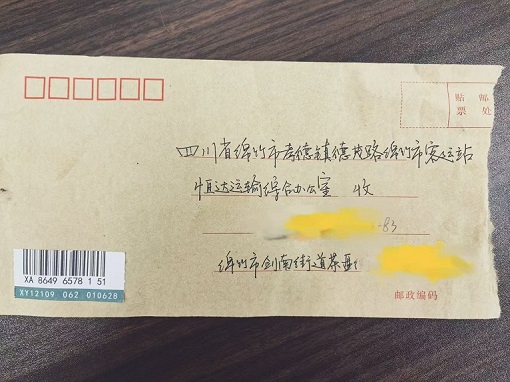 贴 邮
票 处
四川省绵竹市孝德镇德茂路绵竹市客运站
恒达运输综合办公室 收
-83
绵竹市剑南街道茶
XA 8649 6578 1 51
XY12109 062 010628
邮政编码